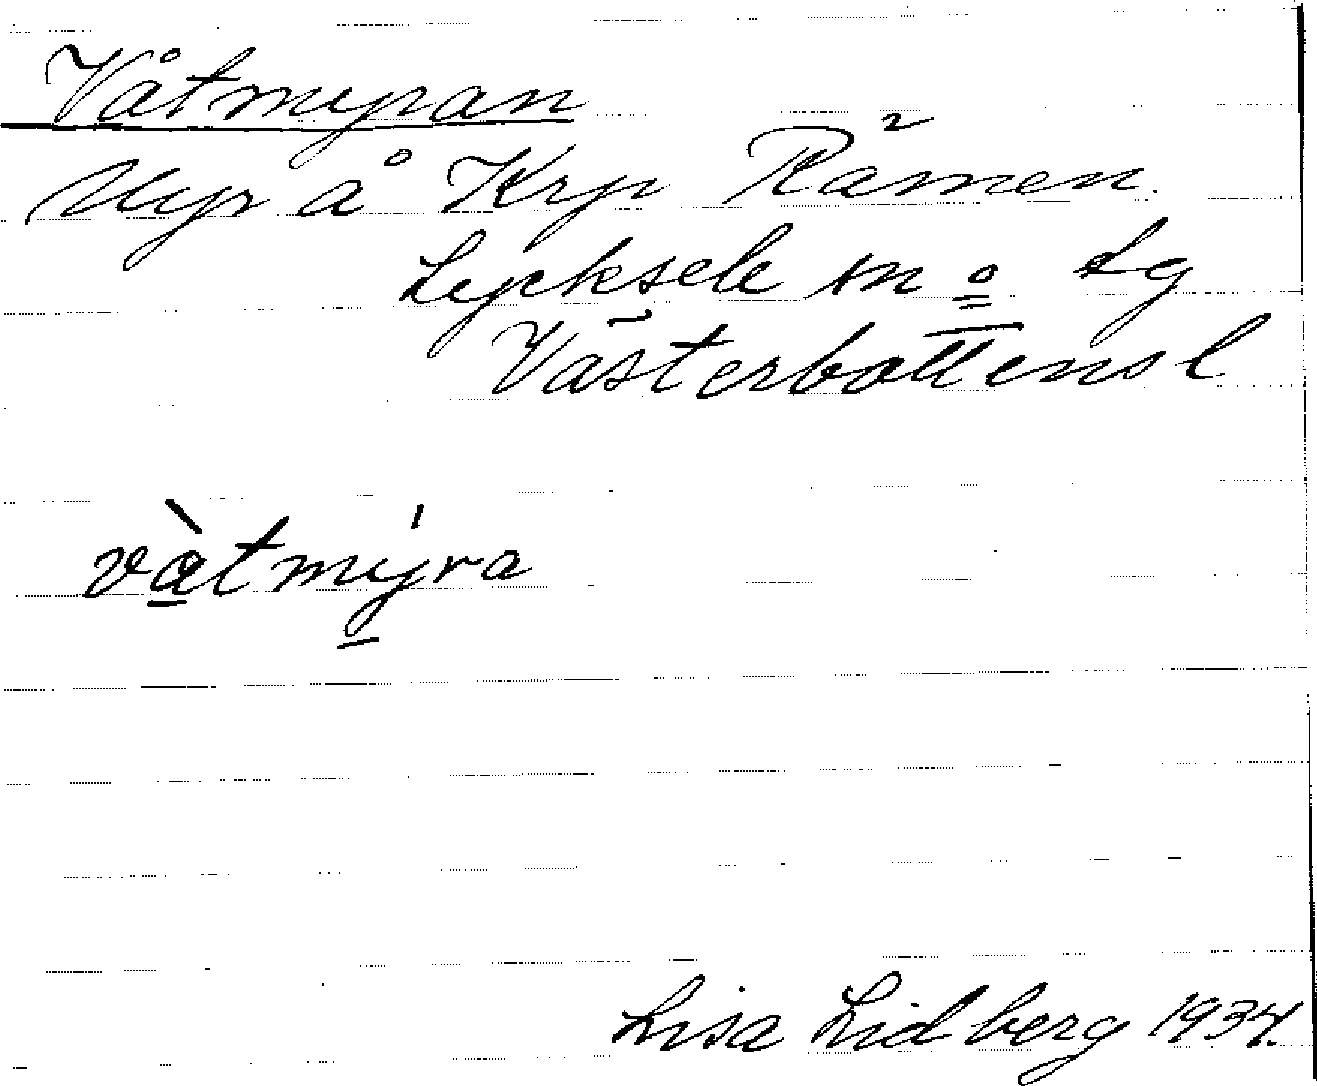 Våtmyran
Myr å Krp Råmen.
Lycksele sn o Lg
Västerbottens l
vàtmy̍ra
Lisa Lidberg 1934.